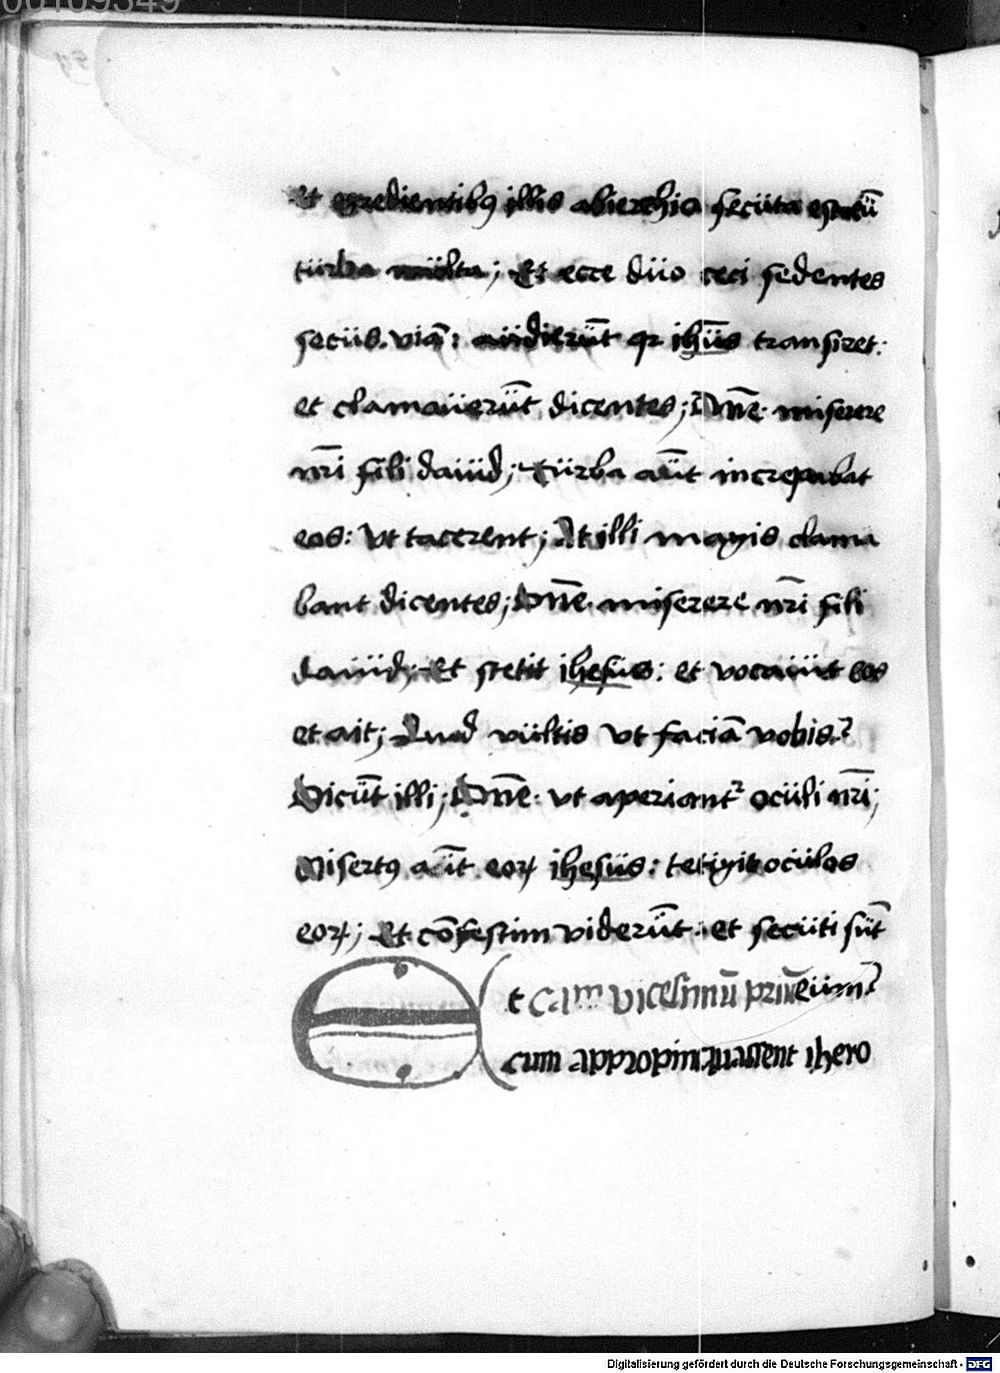 00109349
Et egredientibꝯ illis abierchio secüta est eū
türba mülta; Et ecce düo ceci sedentes
secüs viā: aüdierūt qꝛ ihūs transiret:
et clamaüerūt dicentes; Dn̄e miserere
nr̄i fili daüid; Türba aūt increpabat
eos: Vt tacerent; At illi magis clama
bant dicentes; Dn̄e miserere nr̄i fili
daüid; Et stetit ihesüs: et vocaüit eos
et ait; Quid vültis vt faciā vobis?
Dicūt illi; Dn̄e vt aperiantᷣ ocüli nr̄i;
Misertꝯ aūt eoꝝ ihesüs: tetigit ocülos
eoꝝ; Et cōfestim viderūt: et secüti sūt
Et cam vicesimū primū eüm
cum appropinquassent ihero
Digitalisierung gefördert durch die Deutsche Forschungsgemeinschaft - DFG